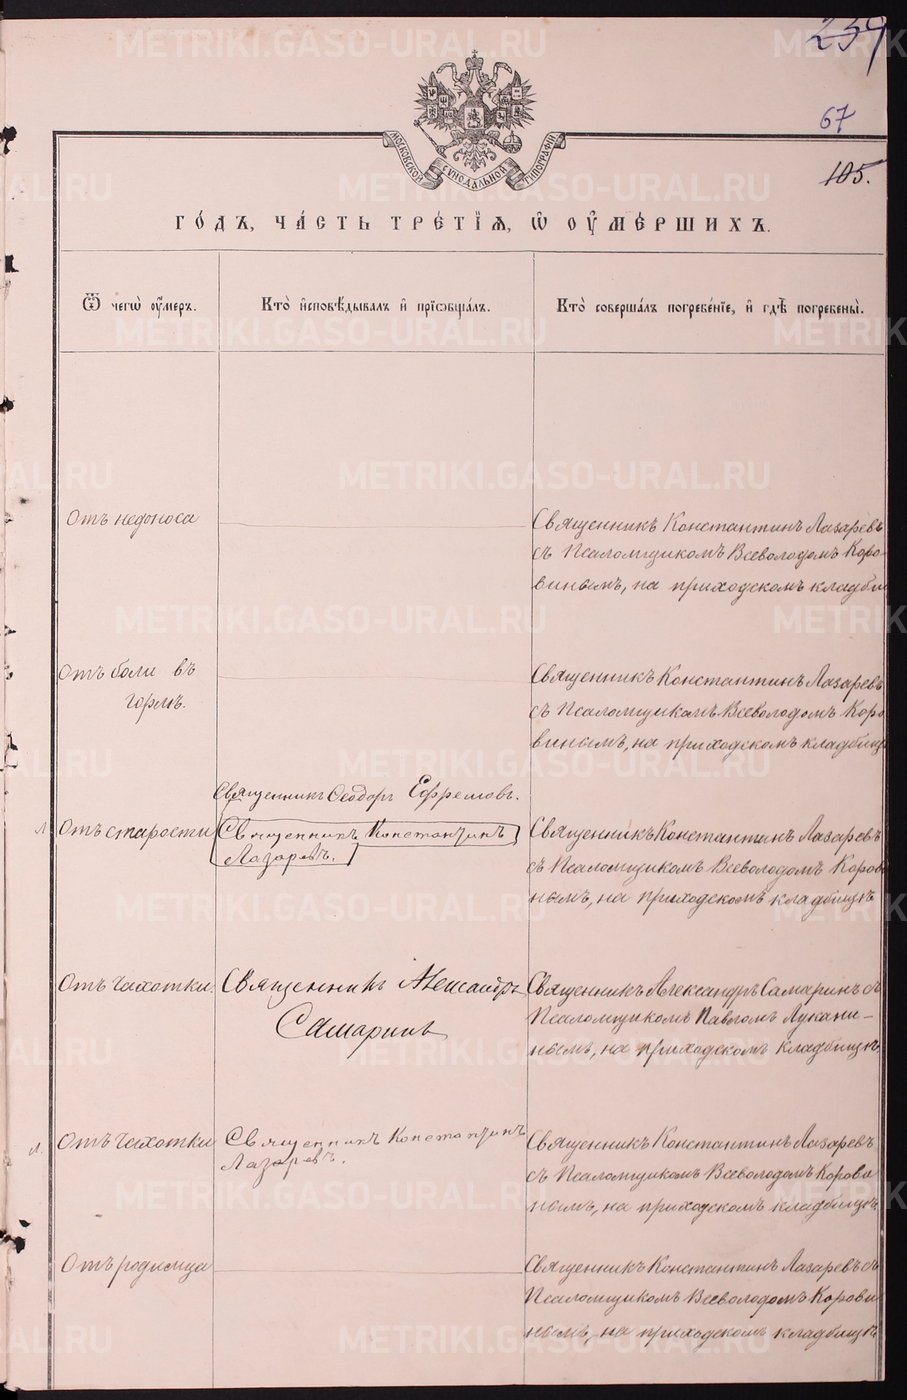 239
67
105.
МОСКОВСКОЙ СѴНОДАЛЬНОЙ ТИПОГРАФІИ
ГО́ДЪ, ЧА́СТЬ ТРЕ́ТІѦ, Ѡ҆ ОУ҆МЕ́РШИХЪ.
Ѿ чегѡ̀ оу҆́меръ.
Кто̀ и҆сповѣ́дывалъ и҆ прїѡбща́лъ.
Кто̀ соверша́лъ погребе́нїе, и҆ гдѣ̀ погребены̀.
Отъ недоноса
Священникъ Константинъ Лазаревъ
съ Псаломщикомъ Всеволодомъ Коро-
винымъ, на приходскомъ кладби
Отъ боли въ
горлѣ.
Священникъ Константинъ Лазаревъ
съ Псаломщикомъ Всеволодомъ Коро
винымъ, на приходскомъ кладбищѣ
Священникъ Ѳеодоръ Ефремовъ.
Л Отъ старости
Священникъ Константинъ
Лазаревъ.
Священникъ Константинъ Лазаревъ
съ Псаломщикомъ Всеволодомъ Корови
нымъ, на приходскомъ кладбищѣ
Отъ чахотки
Священникъ Александръ
Самаринъ
Священникъ Александръ Самаринъ съ
Псаломщикомъ Павломъ Лукани-
нымъ, на приходскомъ кладбищѣ.
Л. Отъ чахотки
Священникъ Константинъ
Лазаревъ.
Священникъ Константинъ Лазаревъ
съ Псаломщикомъ Всеволодомъ Корови
нымъ, на приходскомъ кладбищѣ
Отъ родимца
Священникъ Константинъ Лазаревъ съ
Псаломщикомъ Всеволодомъ Корови
нымъ, на приходскомъ кладбищѣ
METRIKI.GASO-URAL.RU